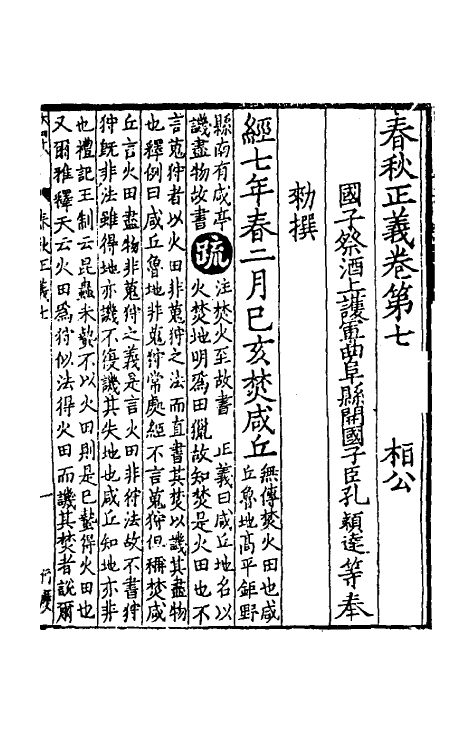 春秋正義卷第七　桓公
國子祭酒上護軍曲阜縣開國子臣孔穎達等奉
勑撰
經七年春二月己亥焚咸丘
無傳焚火田也咸
丘魯地高平鉅野
縣南有咸亭
譏盡物故書
疏
注焚火至故書　正義曰咸丘地名以
火焚地明爲田獵故知焚是火田也不
言蒐狩者以火田非蒐狩之法而直書其焚以譏其盡物
也釋例曰咸丘魯地非蒐狩常處經不言蒐狩但稱焚咸
丘言火田盡物非蒐狩之義是言火田非狩法故不書狩
狩既非法雖得地亦譏不復譏其失地也咸丘知地亦非
也禮記王制云昆蟲未蟄不以火田則是已蟄得火田也
又爾雅釋天云火田爲狩似法得火田而譏其焚者說爾
春秋正義七　一